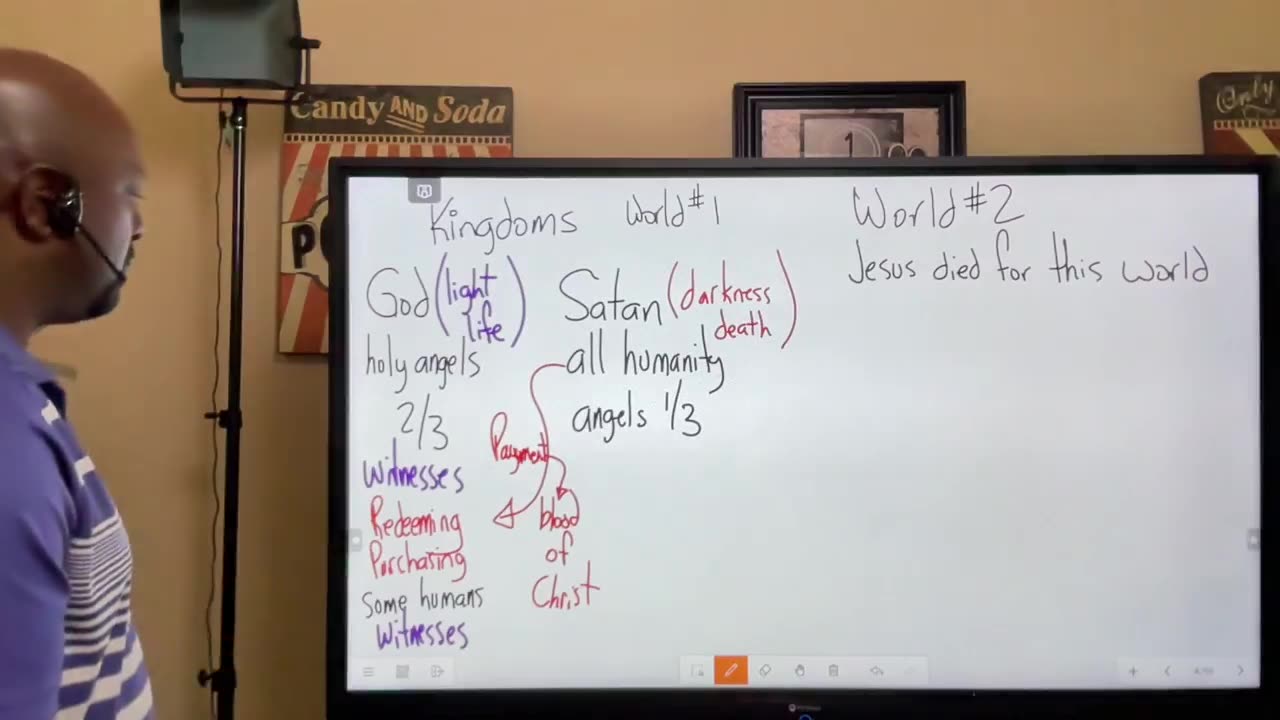 Candy AND Soda
Only
1
P
Kingdoms World #1
World #2
Jesus died for this world
God (light life)
Satan (darkness death)
holy angels
2/3
all humanity
angels 1/3
Witnesses
Payment
Redeeming
Purchasing
Some humans
Witnesses
blood
of
Christ